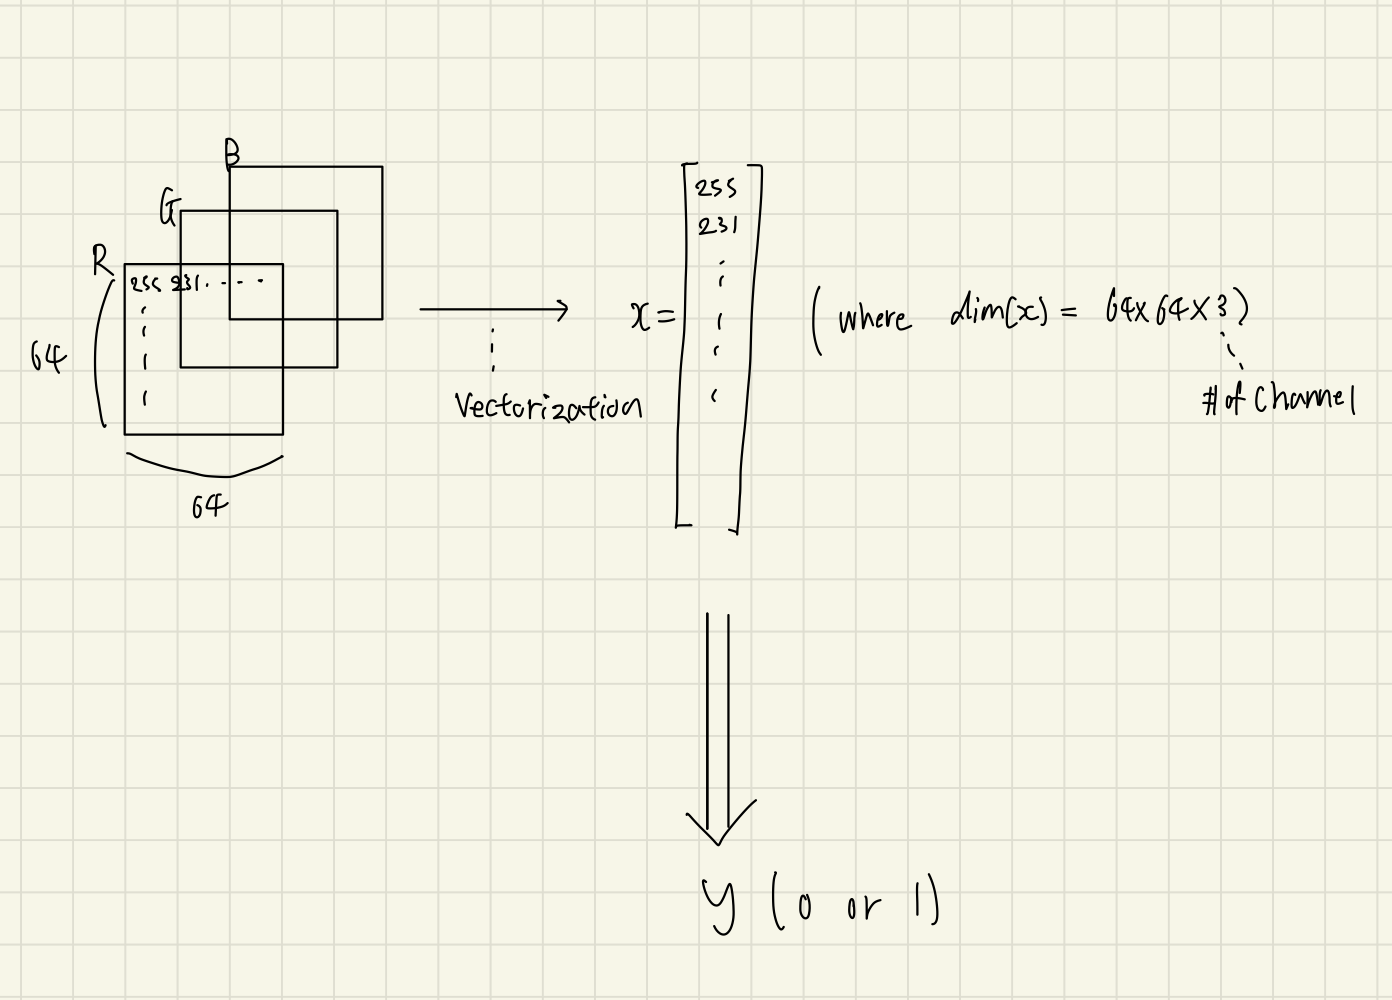 B
G
R
255 231. - - -
64
64
Vectorization
x =
255
231
(where dim(x) = 64x64x3)
# of Channel
y (0 or 1)